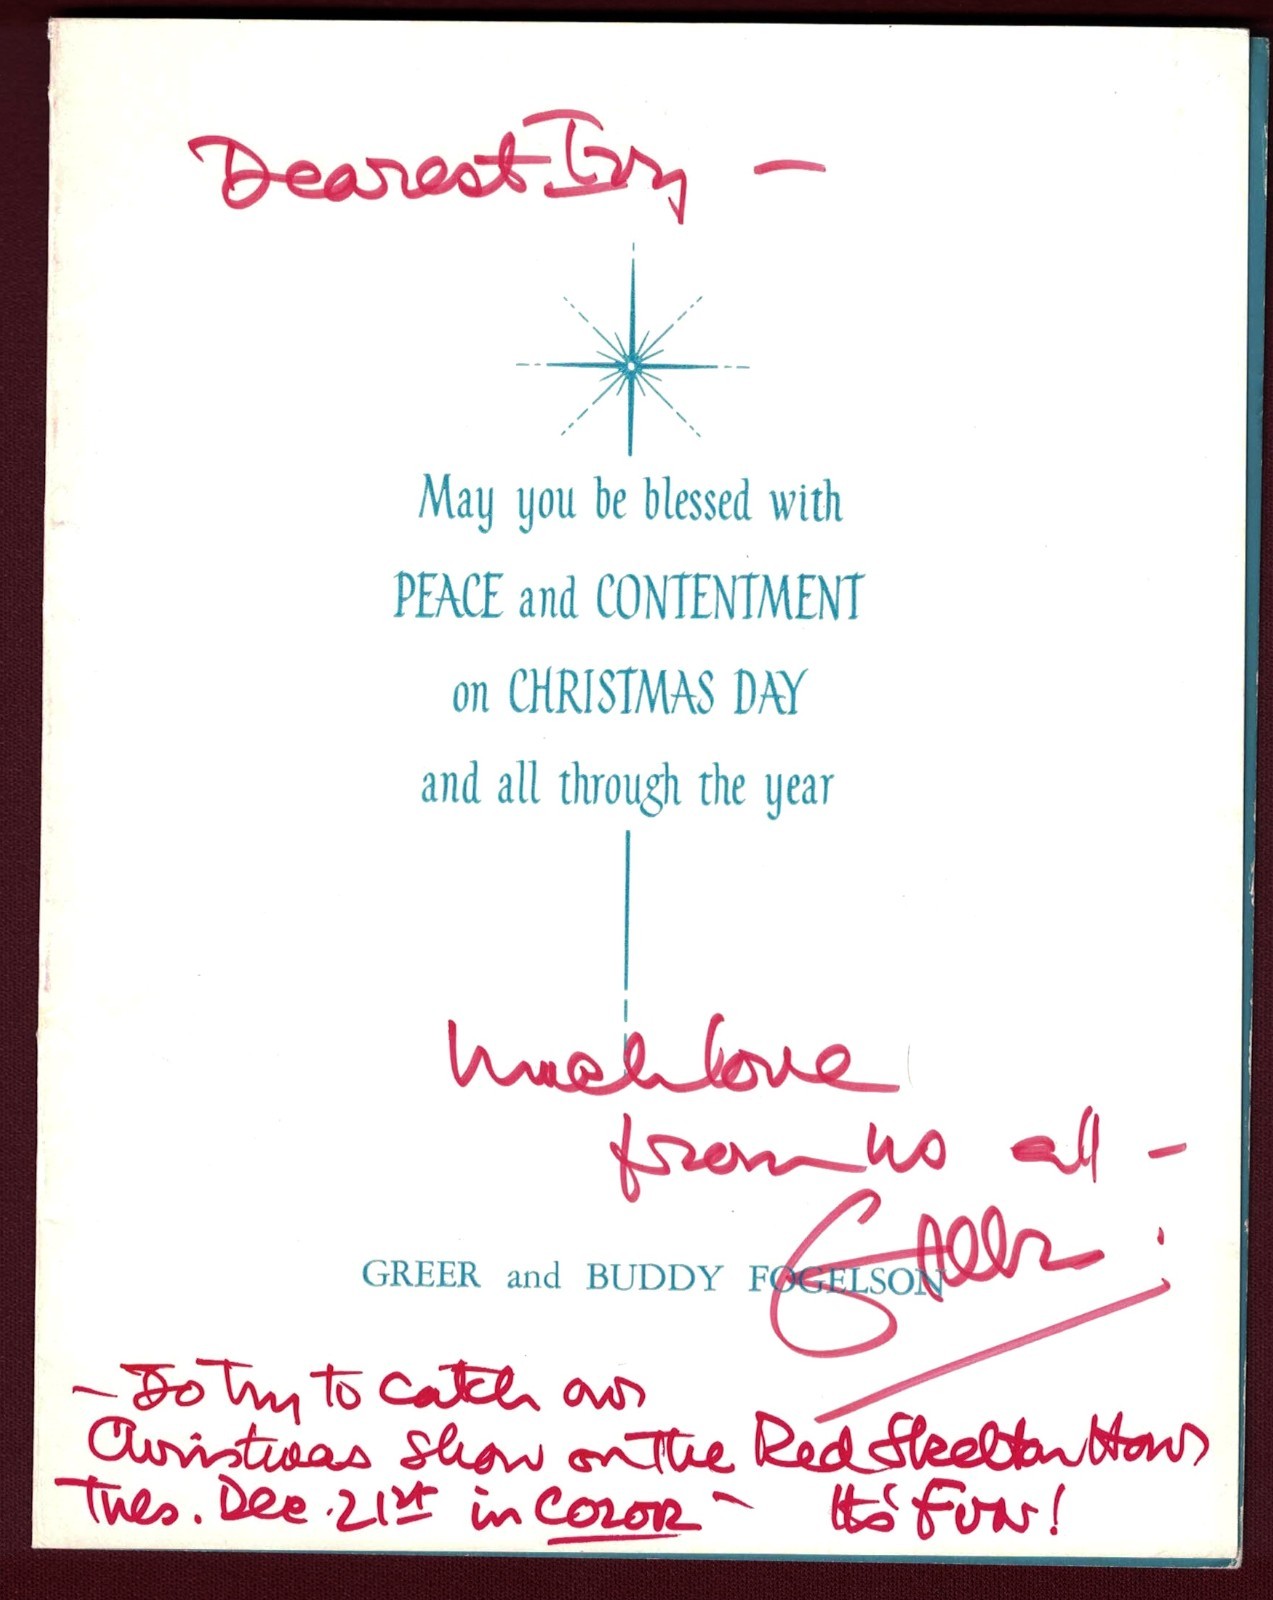 Dearest Ivy —
May you be blessed with
PEACE and CONTENTMENT
on CHRISTMAS DAY
and all through the year
Much love
from us all —
Greer!
GREER and BUDDY FOGELSON
— Do try to catch our
Christmas Show on the Red Skelton Hour
Tues. Dec. 21st in COLOR — It's FUN!